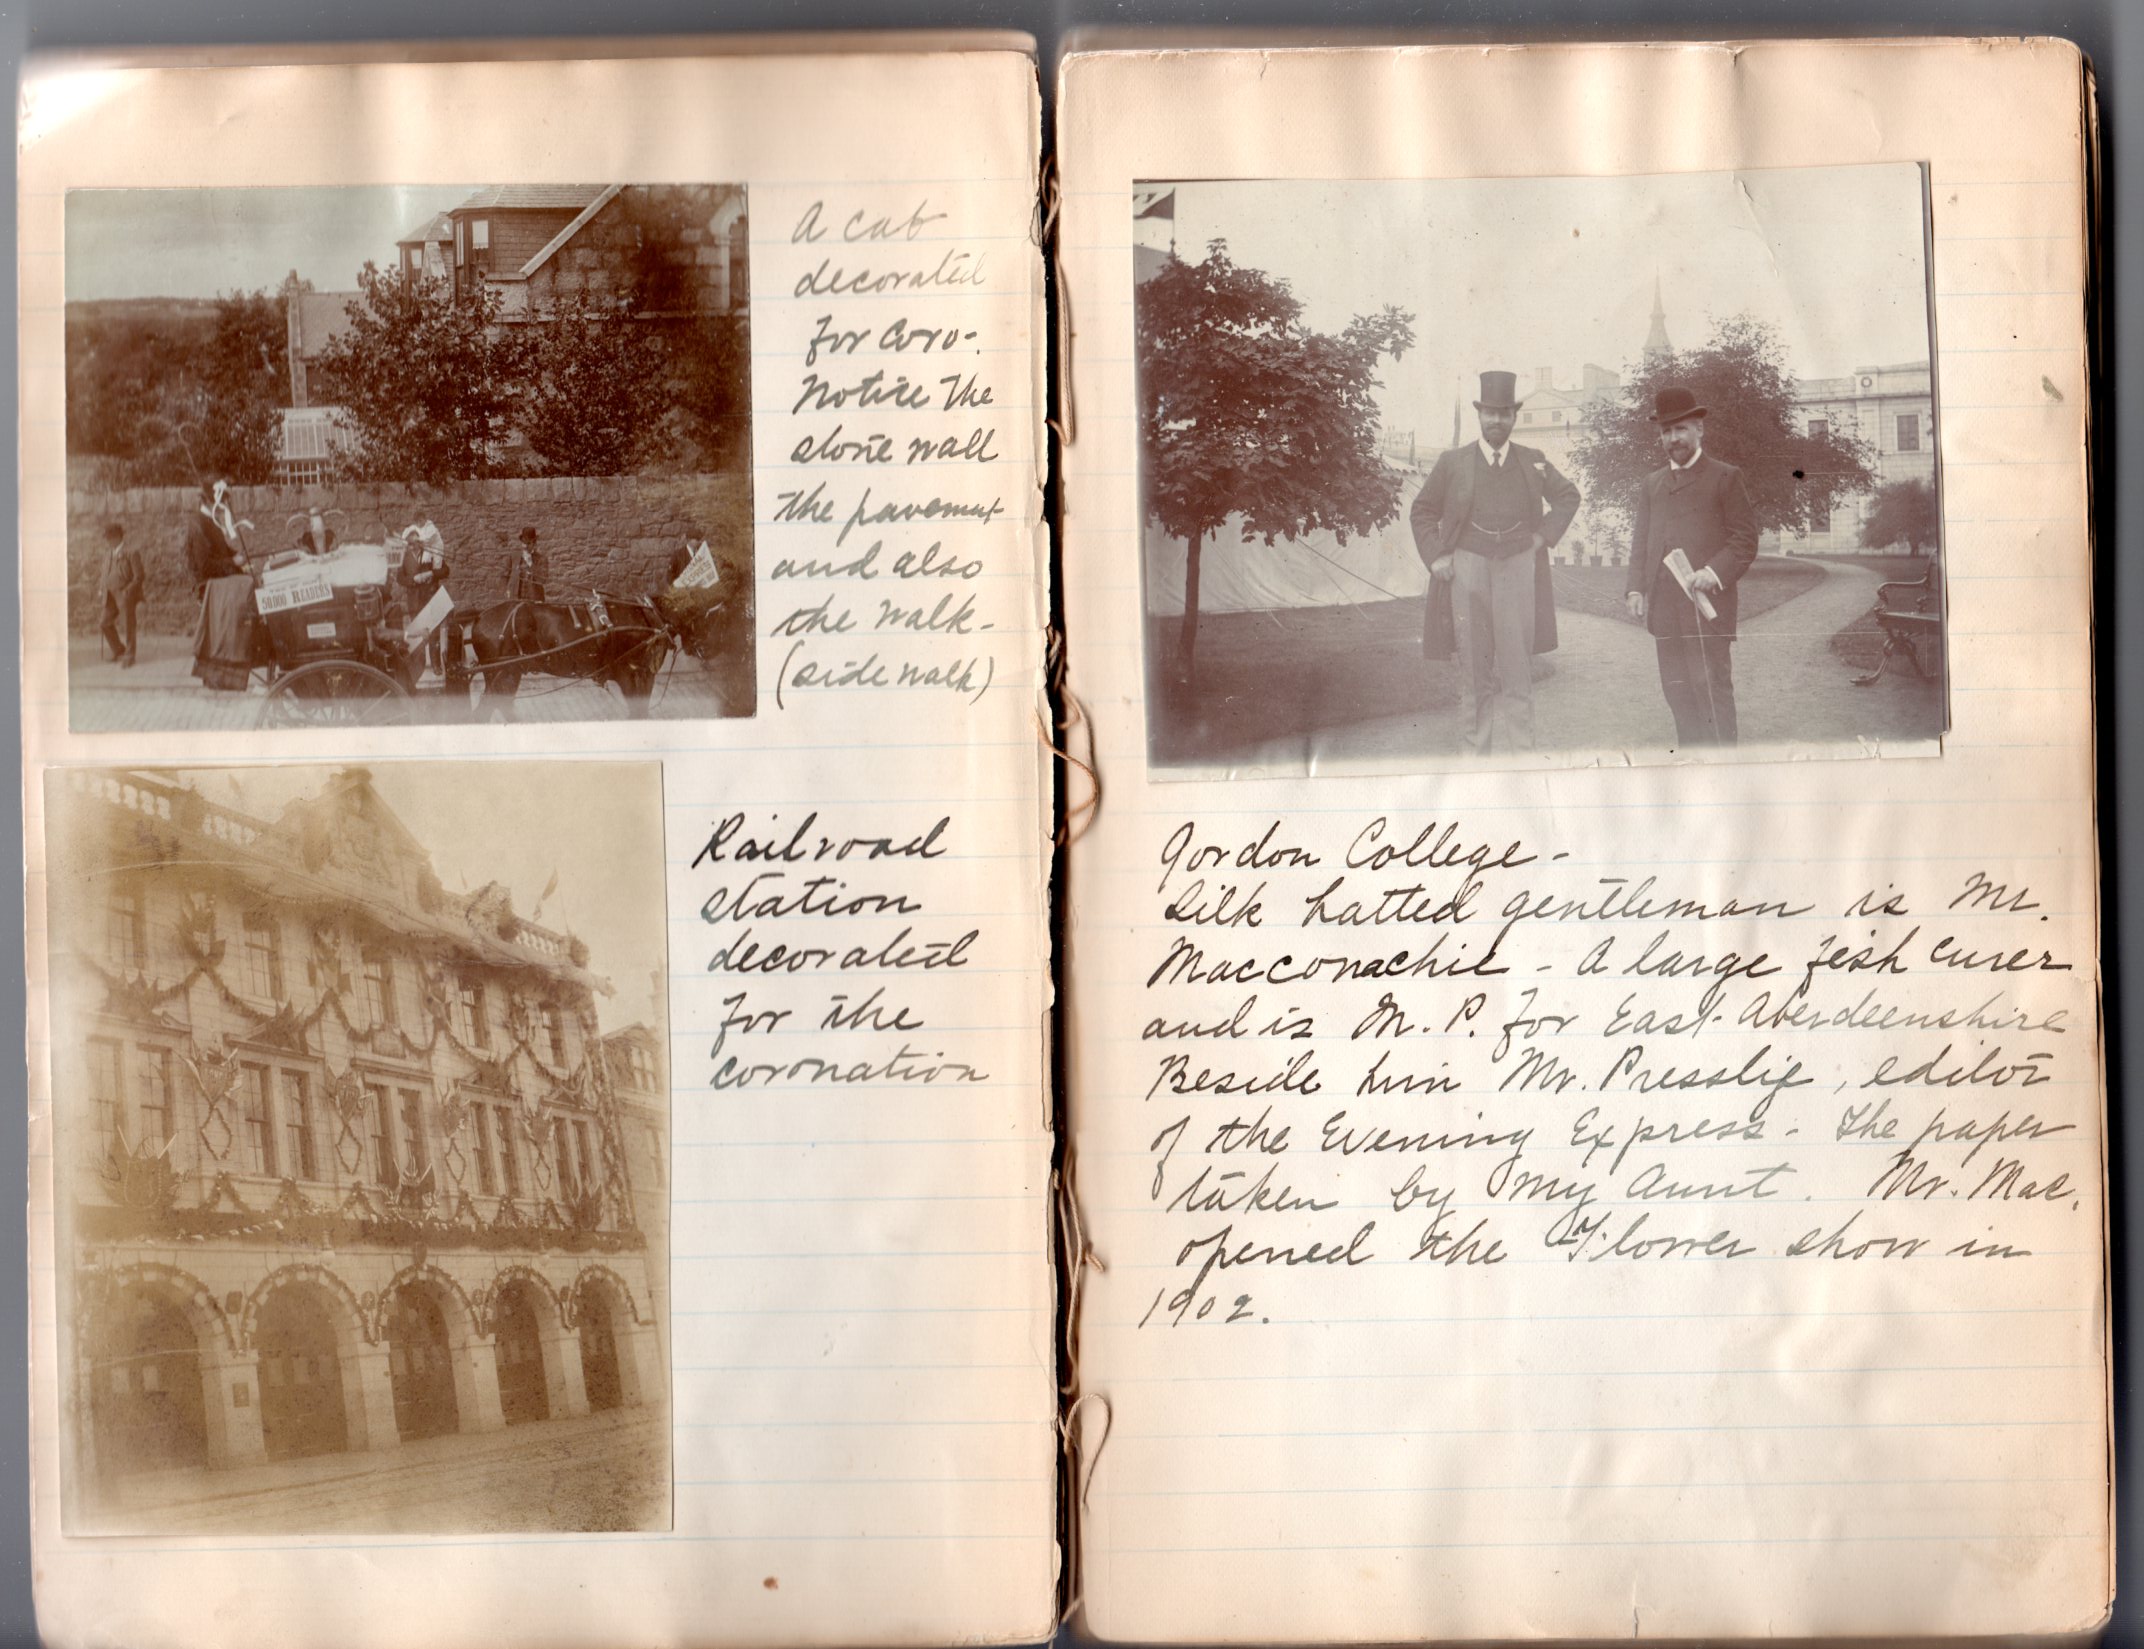 A cab
decorated
for Coro-
Notice the
stone wall
the pavement
and also
the walk-
(side walk)
50,000 READERS
Railroad
station
decorated
for the
coronation
Gordon College-
Silk hatted gentleman is Mr.
Macconachie - A large fish curer
and is M. P. for East Aberdeenshire
Beside him Mr. Presslie, editor
of the Evening Express - The paper
taken by my Aunt. Mr. Mac.
opened the Flower show in
1902.